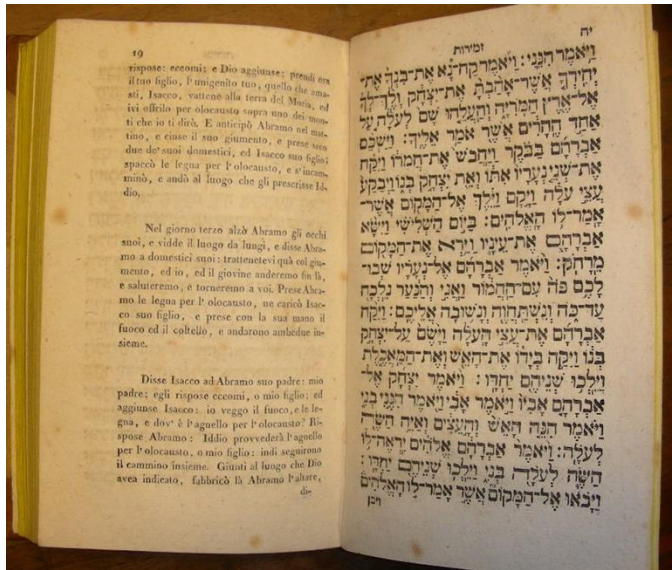 19
rispose: eccomi; e Dio aggiunse; prendi ora
il tuo figlio, l'unigenito tuo, quello che ama-
sti, Isacco, vattene alla terra del Moria, ed
ivi offrilo per olocausto sopra uno dei mon-
ti che io ti dirò. E anticipò Abramo nel mat-
tino, e cinse il suo giumento, e prese seco
due de' suoi domestici, ed Isacco suo figlio;
spaccò le legna per l'olocausto, e s'incam-
minò, e andò al luogo che gli prescrisse Id-
dio.
Nel giorno terzo alzò Abramo gli occhi
suoi, e vidde il luogo da lungi, e disse Abra-
mo a domestici suoi: trattenetevi quà col giu-
mento, ed io, ed il giovine anderemo fin là,
e saluteremo, e torneremo a voi. Prese Abra-
mo le legna per l' olocausto, ne caricò Isac-
co suo figlio, e prese con la sua mano il
fuoco ed il coltello, e andarono ambedue in-
sieme.
Disse Isacco ad Abramo suo padre: mio
padre; egli rispose eccomi, o mio figlio; ed
aggiunse Isacco: io veggo il fuoco, e le le-
gna, e dov' è l'agnello per l'olocausto? Ri-
spose Abramo: Iddio provvederà l'agnello
per l'olocausto, o mio figlio: indi seguirono
il cammino insieme. Giunti al luogo che Dio
avea indicato, fabbricò là Abramo l'altare,
di-
יה
זמירות
וַיֹּאמֶר הִנֵּנִי: וַיֹּאמֶר קַח־נָא אֶת־בִּנְךָ אֶת־
יְחִידְךָ אֲשֶׁר־אָהַבְתָּ אֶת־יִצְחָק וְלֶךְ־לְךָ
אֶל־אֶרֶץ הַמֹּרִיָּה וְהַעֲלֵהוּ שָׁם לְעֹלָה עַל
אַחַד הֶהָרִים אֲשֶׁר אֹמַר אֵלֶיךָ: וַיַּשְׁכֵּם
אַבְרָהָם בַּבֹּקֶר וַיַּחֲבֹשׁ אֶת־חֲמֹרוֹ וַיִּקַּח
אֶת־שְׁנֵי נְעָרָיו אִתּוֹ וְאֵת יִצְחָק בְּנוֹ וַיְבַקַּע
עֲצֵי עֹלָה וַיָּקָם וַיֵּלֶךְ אֶל־הַמָּקוֹם אֲשֶׁר־
אָמַר־לוֹ הָאֱלֹהִים: בַּיּוֹם הַשְּׁלִישִׁי וַיִּשָּׂא
אַבְרָהָם אֶת־עֵינָיו וַיַּרְא אֶת־הַמָּקוֹם
מֵרָחֹק: וַיֹּאמֶר אַבְרָהָם אֶל־נְעָרָיו שְׁבוּ־
לָכֶם פֹּה עִם־הַחֲמוֹר וַאֲנִי וְהַנַּעַר נֵלְכָה
עַד־כֹּה וְנִשְׁתַּחֲוֶה וְנָשׁוּבָה אֲלֵיכֶם: וַיִּקַּח
אַבְרָהָם אֶת־עֲצֵי הָעֹלָה וַיָּשֶׂם עַל־יִצְחָק
בְּנוֹ וַיִּקַּח בְּיָדוֹ אֶת־הָאֵשׁ וְאֶת־הַמַּאֲכֶלֶת
וַיֵּלְכוּ שְׁנֵיהֶם יַחְדָּו: וַיֹּאמֶר יִצְחָק אֶל־
אַבְרָהָם אָבִיו וַיֹּאמֶר אָבִי וַיֹּאמֶר הִנֶּנִּי בְנִי
וַיֹּאמֶר הִנֵּה הָאֵשׁ וְהָעֵצִים וְאַיֵּה הַשֶּׂה
לְעֹלָה: וַיֹּאמֶר אַבְרָהָם אֱלֹהִים יִרְאֶה־לּוֹ
הַשֶּׂה לְעֹלָה בְּנִי וַיֵּלְכוּ שְׁנֵיהֶם יַחְדָּו:
וַיָּבֹאוּ אֶל־הַמָּקוֹם אֲשֶׁר אָמַר־לוֹ הָאֱלֹהִים
ויבן